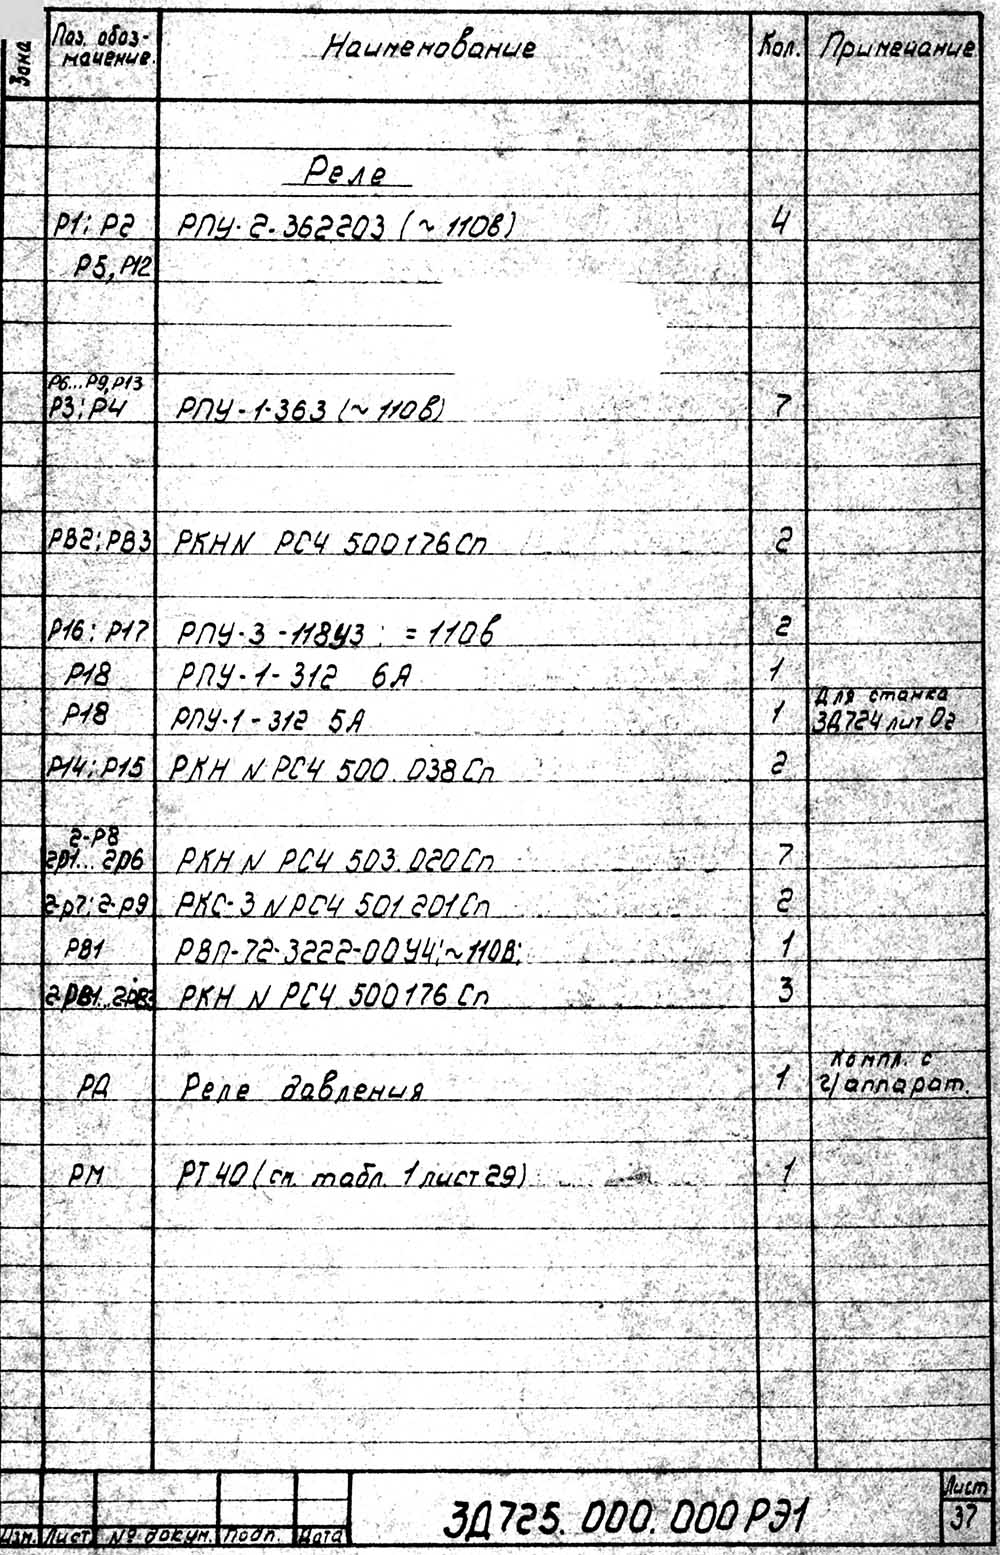 Зона
Поз. обоз-
начение.
Наименование
Кол.
Примечание
Реле
Р1; Р2
РПУ-2-362203 (~110в)
4
Р5, Р12
Р6...Р9, Р13
Р3; Р4
РПУ-1-363 (~110в)
7
РВ2; РВ3
РКНN РС4 500176Сп
2
Р16; Р17
РПУ-3-118У3; =110в
2
Р18
РПУ-1-312 6А
1
Для станка
Р18
РПУ-1-312 5А
1
3Д724 лит О2
Р14; Р15
РКН N РС4 500.038Сп
2
2-Р8
2Р1...2Р6
РКН N РС4 503.020Сп
7
2-Р7; 2-Р9
РКС-3 N РС4 501 201Сп
2
РВ1
РВП-72-3222-00У4; ~110В;
1
2РВ1...2РВ3
РКН N РС4 500176 Сп
3
Компл. с
РД
Реле давления
1
г/аппарат.
РМ
РТ 40 (см. табл. 1 лист 29)
1
Изм. Лист № докум. Подп. Дата
3Д725.000.000РЭ1
Лист
37